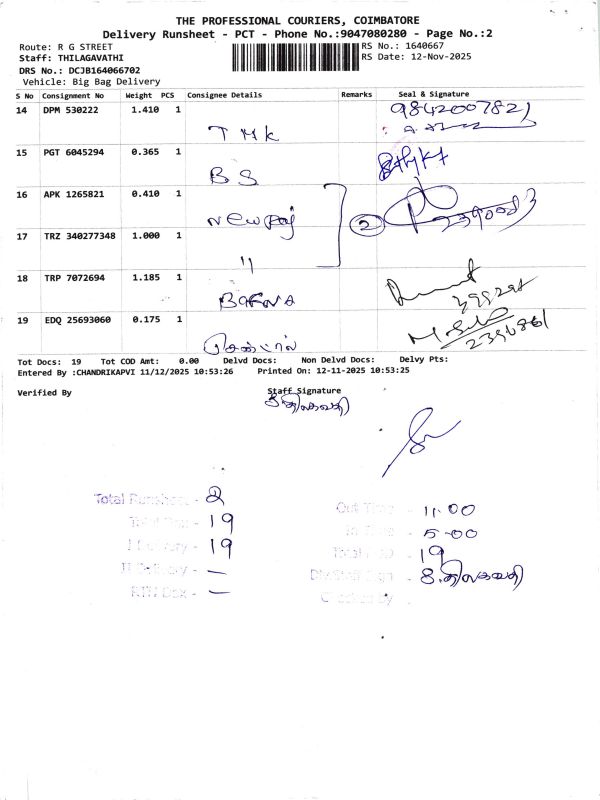 THE PROFESSIONAL COURIERS, COIMBATORE
Delivery Runsheet - PCT - Phone No.:9047080280 - Page No.:2
Route: R G STREET RS No.: 1640667
Staff: THILAGAVATHI RS Date: 12-Nov-2025
DRS No.: DCJB164066702
Vehicle: Big Bag Delivery
S No Consignment No Weight PCS Consignee Details Remarks Seal & Signature
14 DPM 530222 1.410 1 9842007821
TMK
15 PGT 6045294 0.365 1
BS
16 APK 1265821 0.410 1
New Raj 2
17 TRZ 340277348 1.000 1
"
18 TRP 7072694 1.185 1
BAFNA
19 EDQ 25693060 0.175 1
Tot Docs: 19 Tot COD Amt: 0.00 Delvd Docs: Non Delvd Docs: Delvy Pts:
Entered By :CHANDRIKAPVI 11/12/2025 10:53:26 Printed On: 12-11-2025 10:53:25
Verified By Staff Signature
Total Runsheet - 2
Out Time - 11.00
Total Dox - 19
In Time - 5.00
I Delivery - 19
Total Dox - 19
II Delivery - —
RTN Dox - —
Checked by